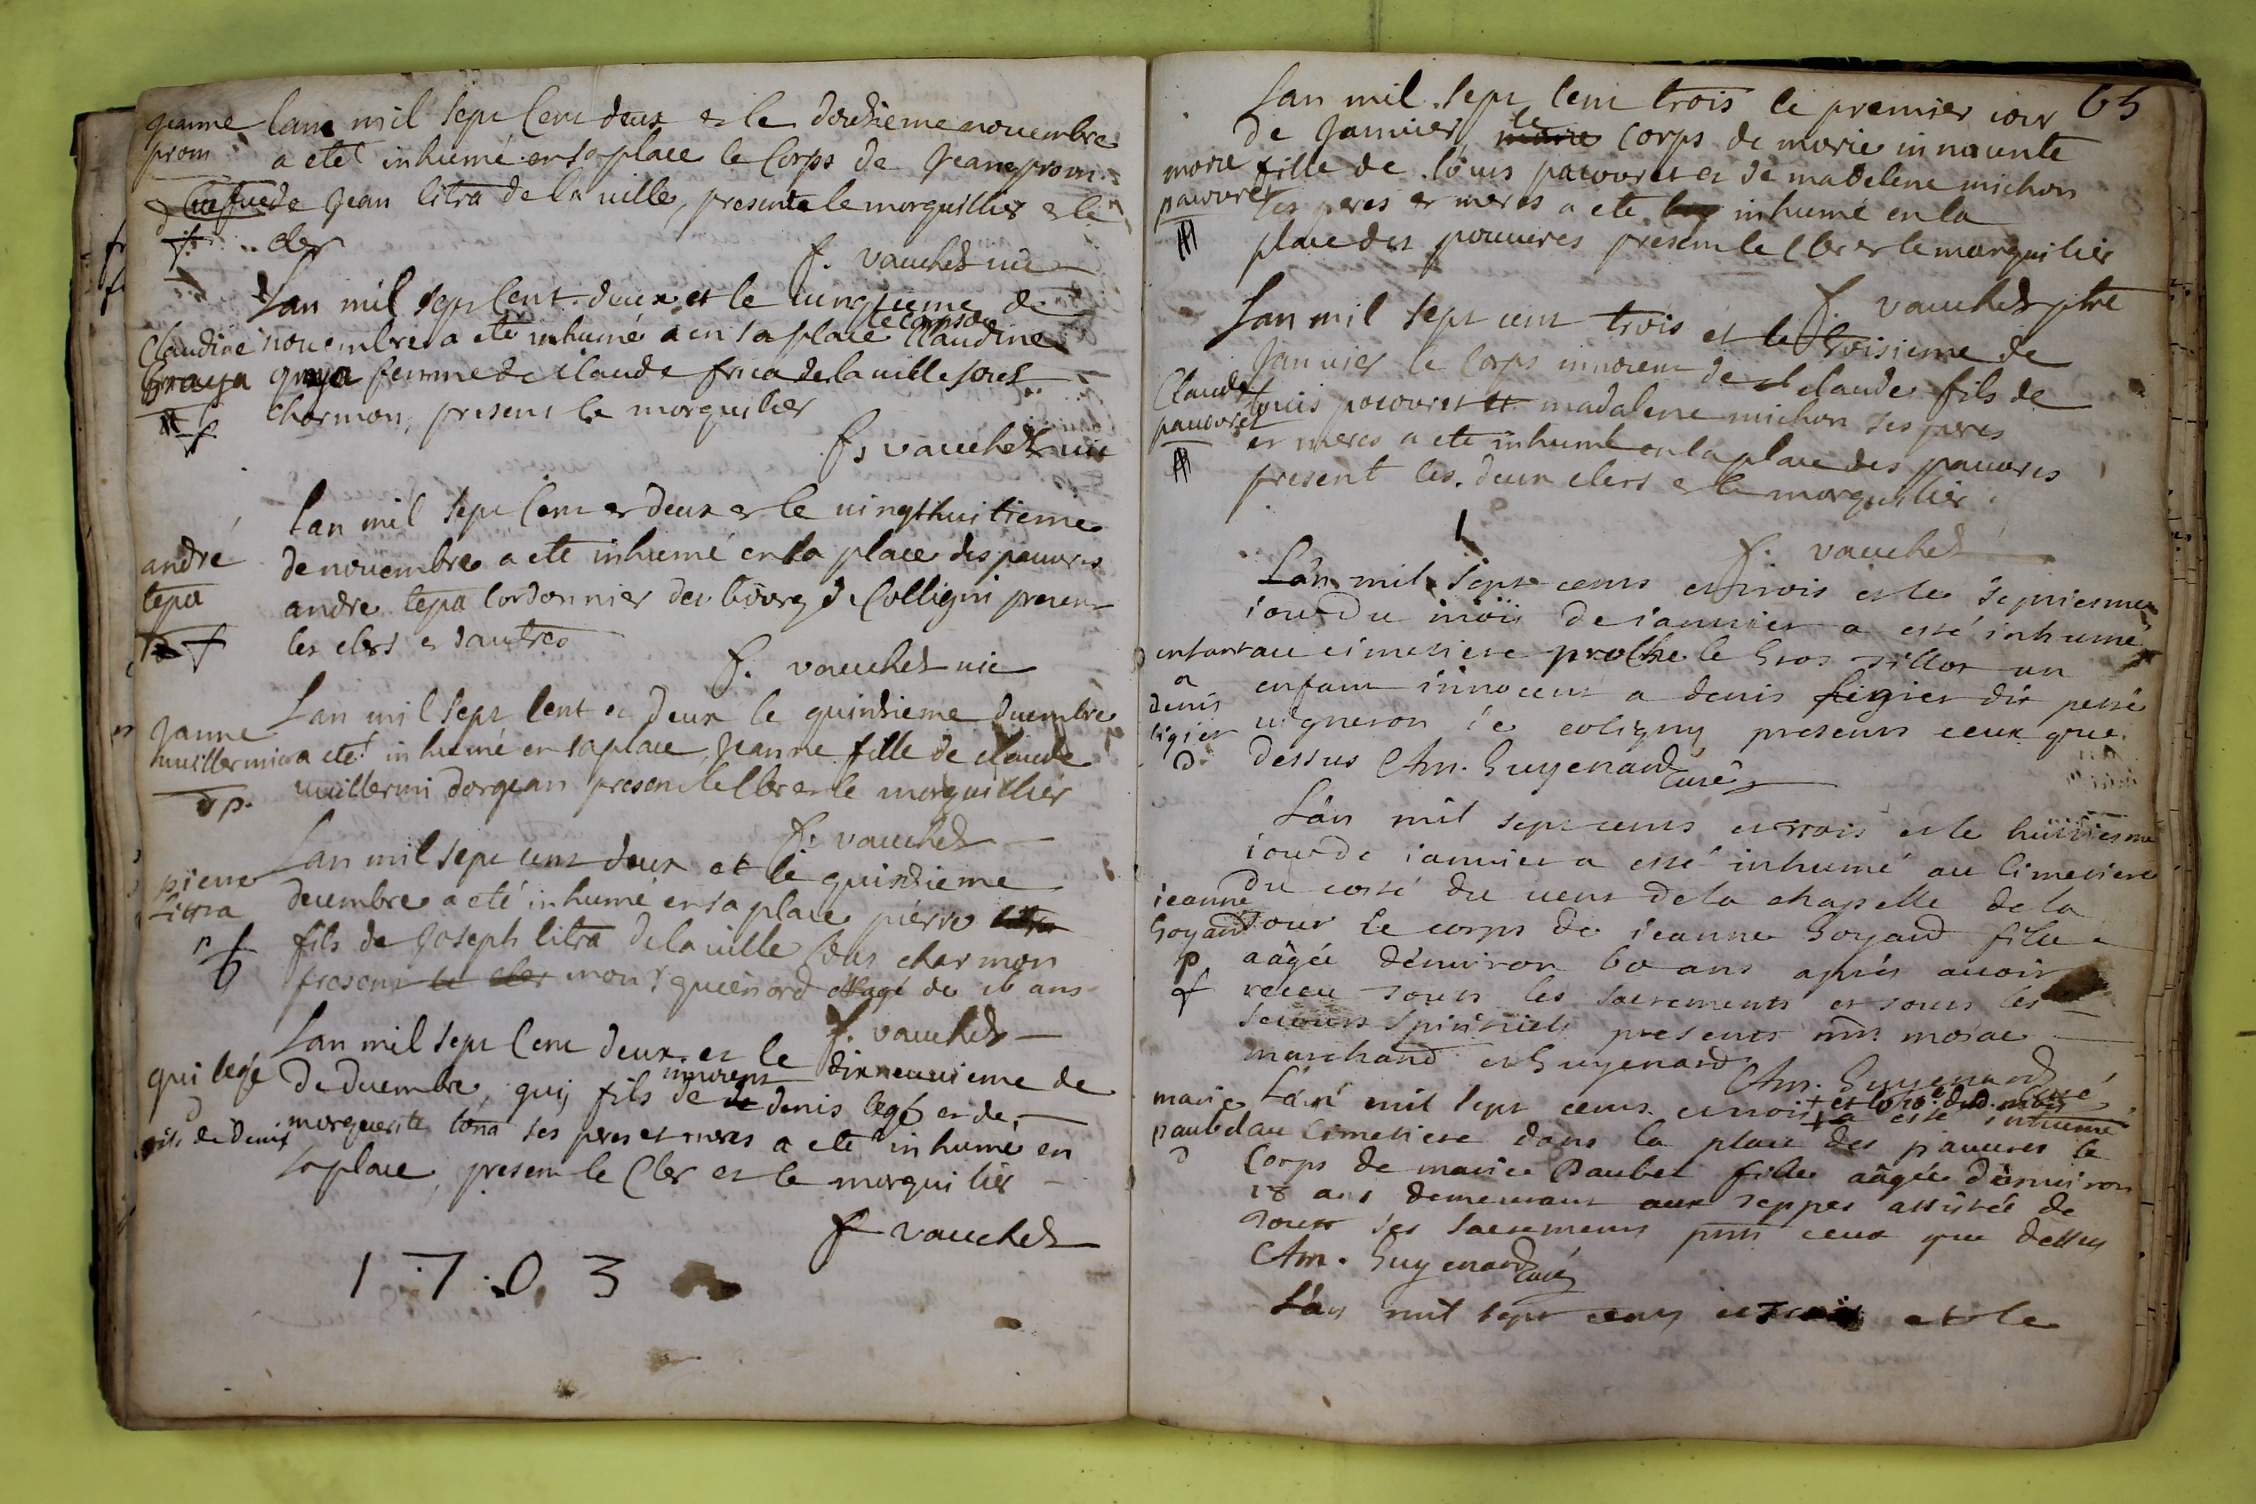 Jeanne
prom
lan mil sept Cent deux et le douzieme novembre
a eté inhumé en sa place le Corps de Jeane prom
de Jean litra de la ville, presente le morguillier et le
cler
f. vauchet vic
Lan mil sept Cent deux et le cinqieme de
Claudine
Graya
novembre a ete inhumé a en sa place le corps de Claudine
graya femme de claude frica de la ville sous
charmon, present le morguilier
f. vauchet vic
lan mil sept Cent et deux et le vingt huitieme
andré
tepa
de novembre a ete inhumé en la place des pauvres
andre tepa Cordonnier du bourg de Colligni present
les clers et dautres
f. vauchet vic
Lan mil sept Cent et deux le quinzieme decembre
Janne
huillermin
a eté inhumé en sa place Jeanne fille de claude
vuillermi dorgean present le Cler et le morguillier
f. vauchet
Lan mil sept cent deux et le quinzieme
pierre
Litra
decembre a eté inhumé en sa place pierre litra
fils de Joseph litra de la ville sous charmon
present le cler mons guienard agé de 16 ans
f. vauchet
Lan mil sept Cent deux et le dixneuvieme de
gui legé
fils de Denis
de decembre, guy fils innocent de denis legé et de
morguerite tona ses peres et meres a eté inhumé en
sa place, present le Cler et le morguilier
f vauchet
1703
65
Lan mil sept Cent trois le premier iour
de Janvier, le corps de marie innocente
marie
pacouret
fille de louis pacouret et de madelene michon
ses peres et meres a ete inhumé en la
place des pouvres present le Cler et le morguilier
f. vauchet ptre
Lan mil sept cent trois et le troisieme de
Janvier le Corps innocent de claude fils de
Claude
pacouret
louis pacouret et madalene michon ses peres
et meres a ete inhumé en la place des pauvres
present les deux clers et le morguilier
f. vauchet
Lan mil sept cents et trois et le septiesme
iour du mois de ianvier a esté inhumé
enfant
a
denis
ligier
au cimetiere proche le gros tillot un
enfant innocent a denis ligier dit perré
vigneron de coligny presents ceux que
dessus Am. Guyenard curé
Lân mil sept cents et trois et le huitiesme
iour de ianvier a esté inhumé au Cimetiere
du costé du vent de la chapelle de la
ieanne
Goyard
tour le corps de ieanne Goyard fille
aâgée d'environ 60 ans aprés avoir
receu tous les sacrements et tous les
secours spirituels presents mrs moiae
marchand et Guyenard
Am. Guyenard curé
marie
paubel
Lân mil sept cents et trois et le 10e dud. mois a esté inhumé
au Cimetiere dans la place des pauvres le
Corps de marie Paubel fille aâgée d'environ
18 ans demeurant aux teppes assistée de
tous ses sacrements pnts ceux que dessus
Am. Guyenard curé
Lân mil sept cents et trois et le